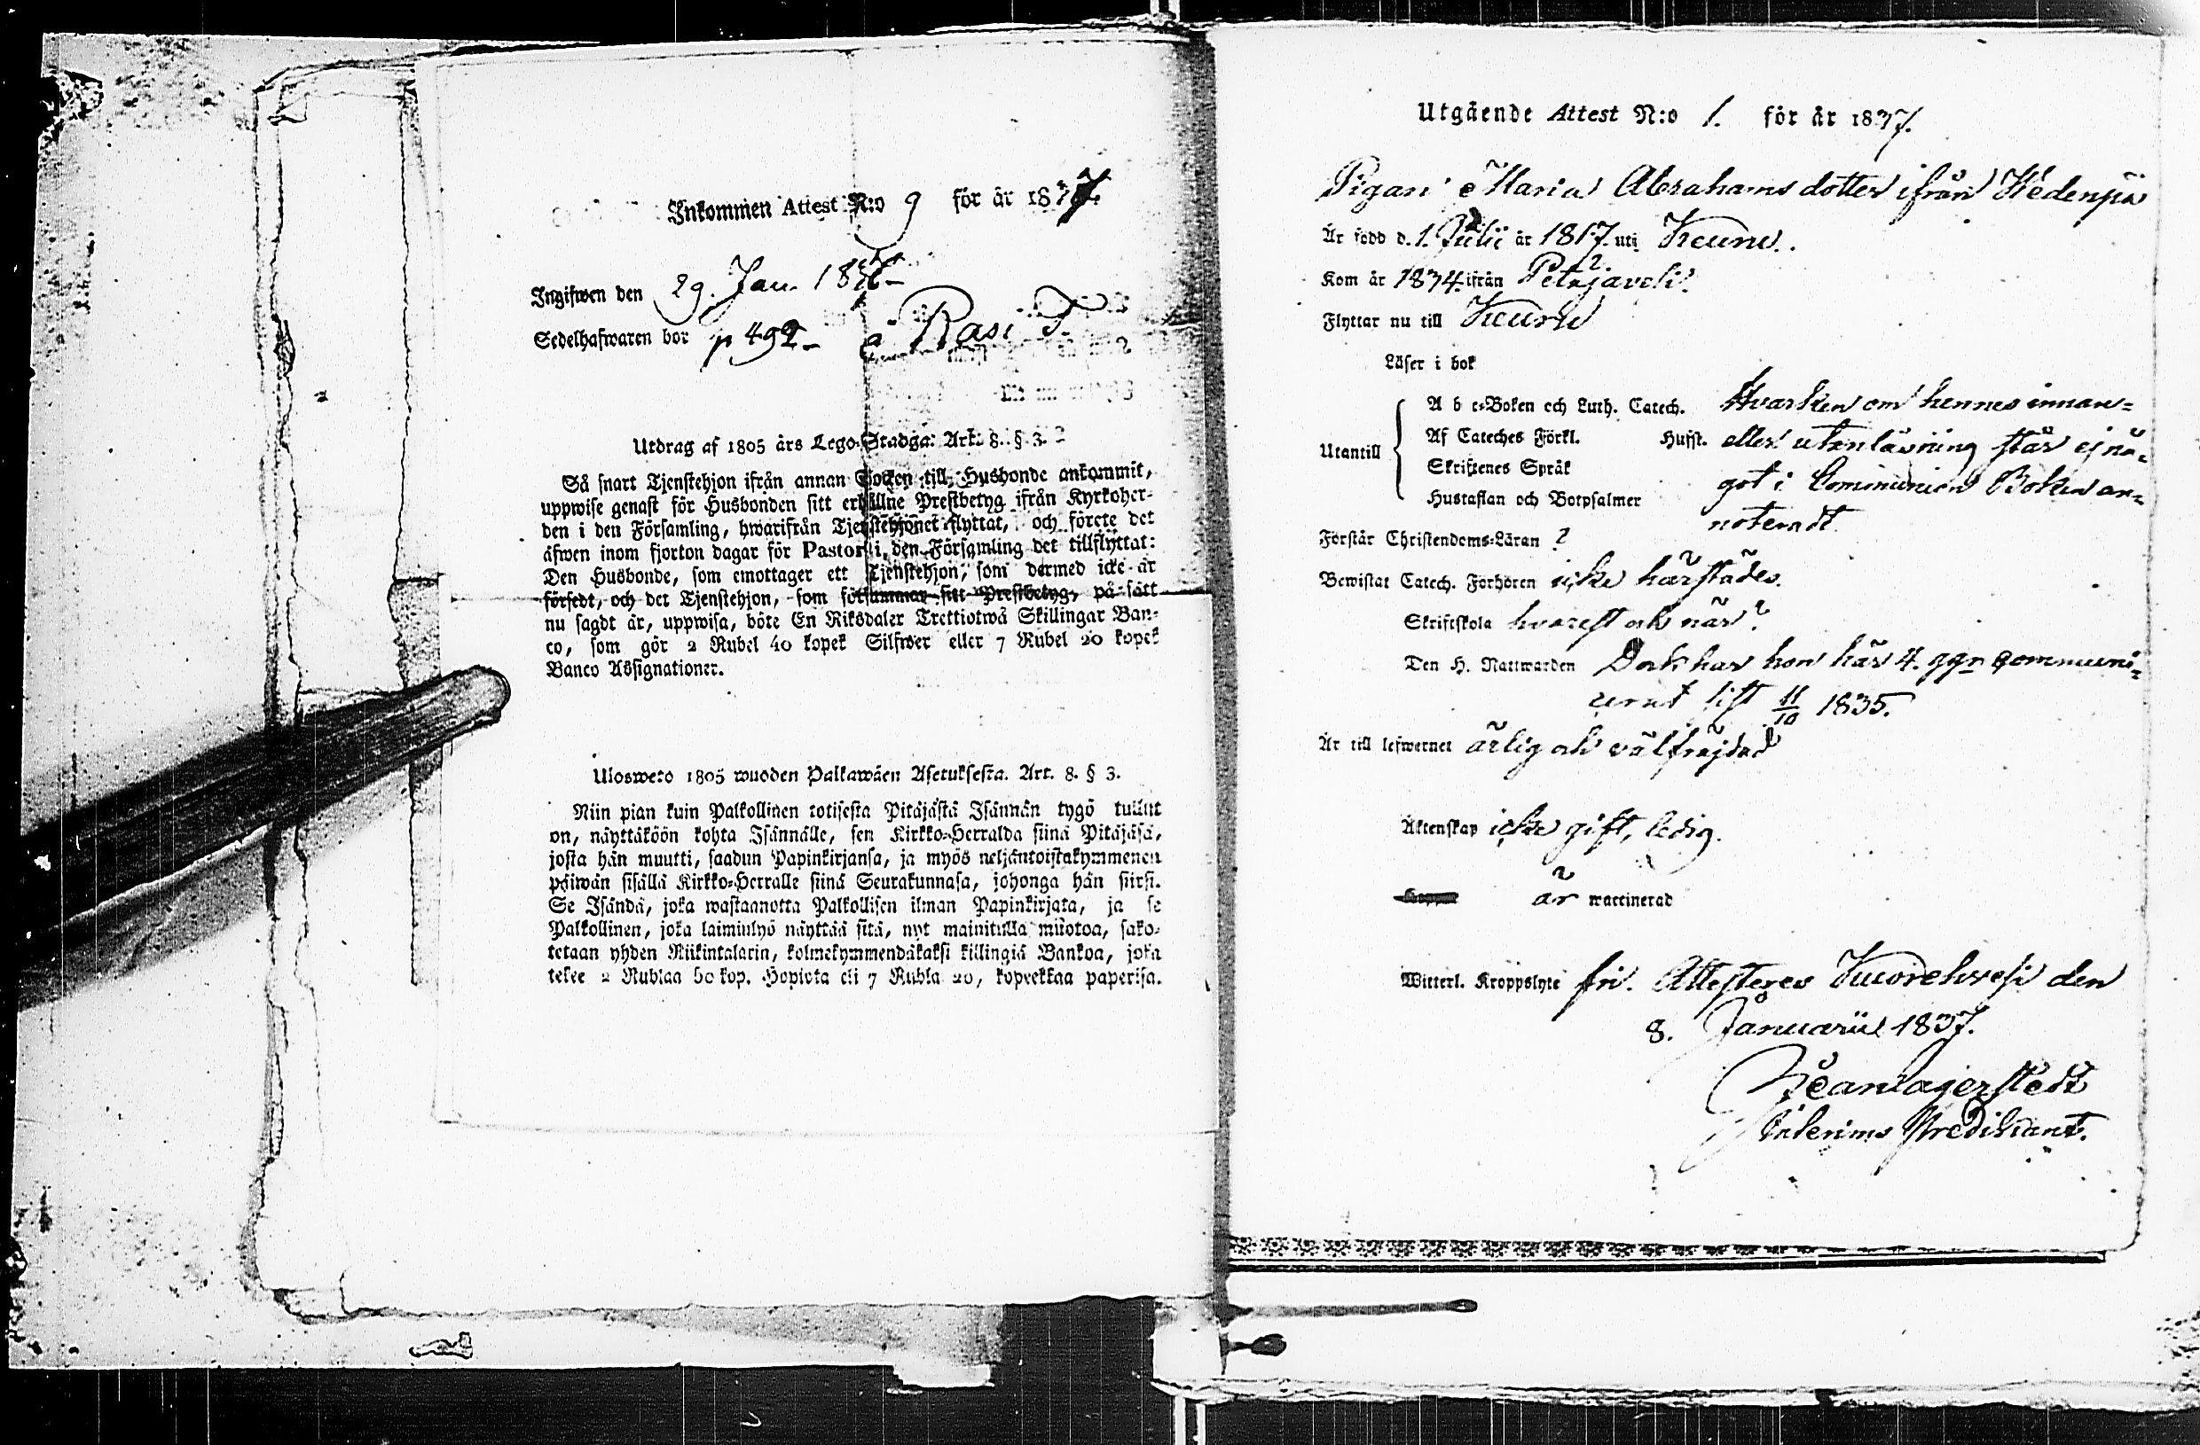 Inkommen Attest N:o 9 för år 1837.
Ingifwen den 29. Jan. 18
Sedelhafwaren bor p 492 - å Rasi T.
Utdrag af 1805 års Lego-Stadga: Art. 8. § 3.
Så snart Tjenstehjon ifrån annan Socken till Husbonde ankommit,
uppwise genast för Husbonden sitt erhållne Prestbetyg ifrån Kyrkoher-
den i den Församling, hwarifrån Tjenstehjonet flyttat, och förete det
äfwen inom fjorton dagar för Pastor i den Församling det tillflyttat:
Den Husbonde, som emottager ett Tjenstehjon, som dermed icke är
försedt, och det Tjenstehjon, som försummar sitt Prestbetyg, på sätt
nu sagdt är, uppwisa, böte En Riksdaler Trettiotwå Skillingar Ban-
co, som gör 2 Rubel 40 kopek Silfwer eller 7 Rubel 20 kopek
Banco Assignationer.
Ulosweto 1805 wuoden Palkawäen Asetuksesta. Art. 8. § 3.
Niin pian kuin Palkollinen toisesta Pitäjästä Isännän tygö tullut
on, näyttäköön kohta Isännälle, sen Kirkko-Herralda siinä Pitäjäsä,
josta hän muutti, saadun Papinkirjansa, ja myös neljäntoistakymmenen
päiwän sisällä Kirkko-Herralle siinä Seurakunnasa, johonga hän siirsi.
Se Isändä, joka wastaanotta Palkollisen ilman Papinkirjata, ja se
Palkollinen, joka laiminlyö näyttää sitä, nyt mainitulla muotoa, sako-
tetaan yhden Riikintalarin, kolmekymmendäkaksi killingiä Bankoa, joka
tekee 2 Rublaa 40 kop. Hopiota eli 7 Rubla 20, kopeekkaa paperisa.
Utgående Attest N:o 1. för år 1837.
Pigan Maria Abrahamsdotter ifrån Hedenpää
Är född d. 1. Julii år 1817. uti Keuru.
Kom år 1834. ifrån Petäjävesi.
Flyttar nu till Keuru
Läser i bok
A b c-Boken och Luth. Catech. Hvarken om hennes innan-
Utantill
Af Cateches Förkl. Husft. eller utanläsning står ej nå-
Skriftenes Språk
got i Communion Boken an-
Hustaflan och Botpsalmer
noteradt.
Förstår Christendoms-Läran ?
Bewistat Catech. Förhören icke härstädes.
Skriftskola hvarest och när?
Den H. Nattwarden Dock har hon här 4. ggr communi-
cerat sist 11/10 1835.
Är till lefwernet ärlig och välfräjdad
Äktenskap icke gift, ledig.
är waccinerad
Witterl. Kroppslyte fri. Attesteres Kuorehvesi den
8. Januarii 1837.
Interims Predikant.